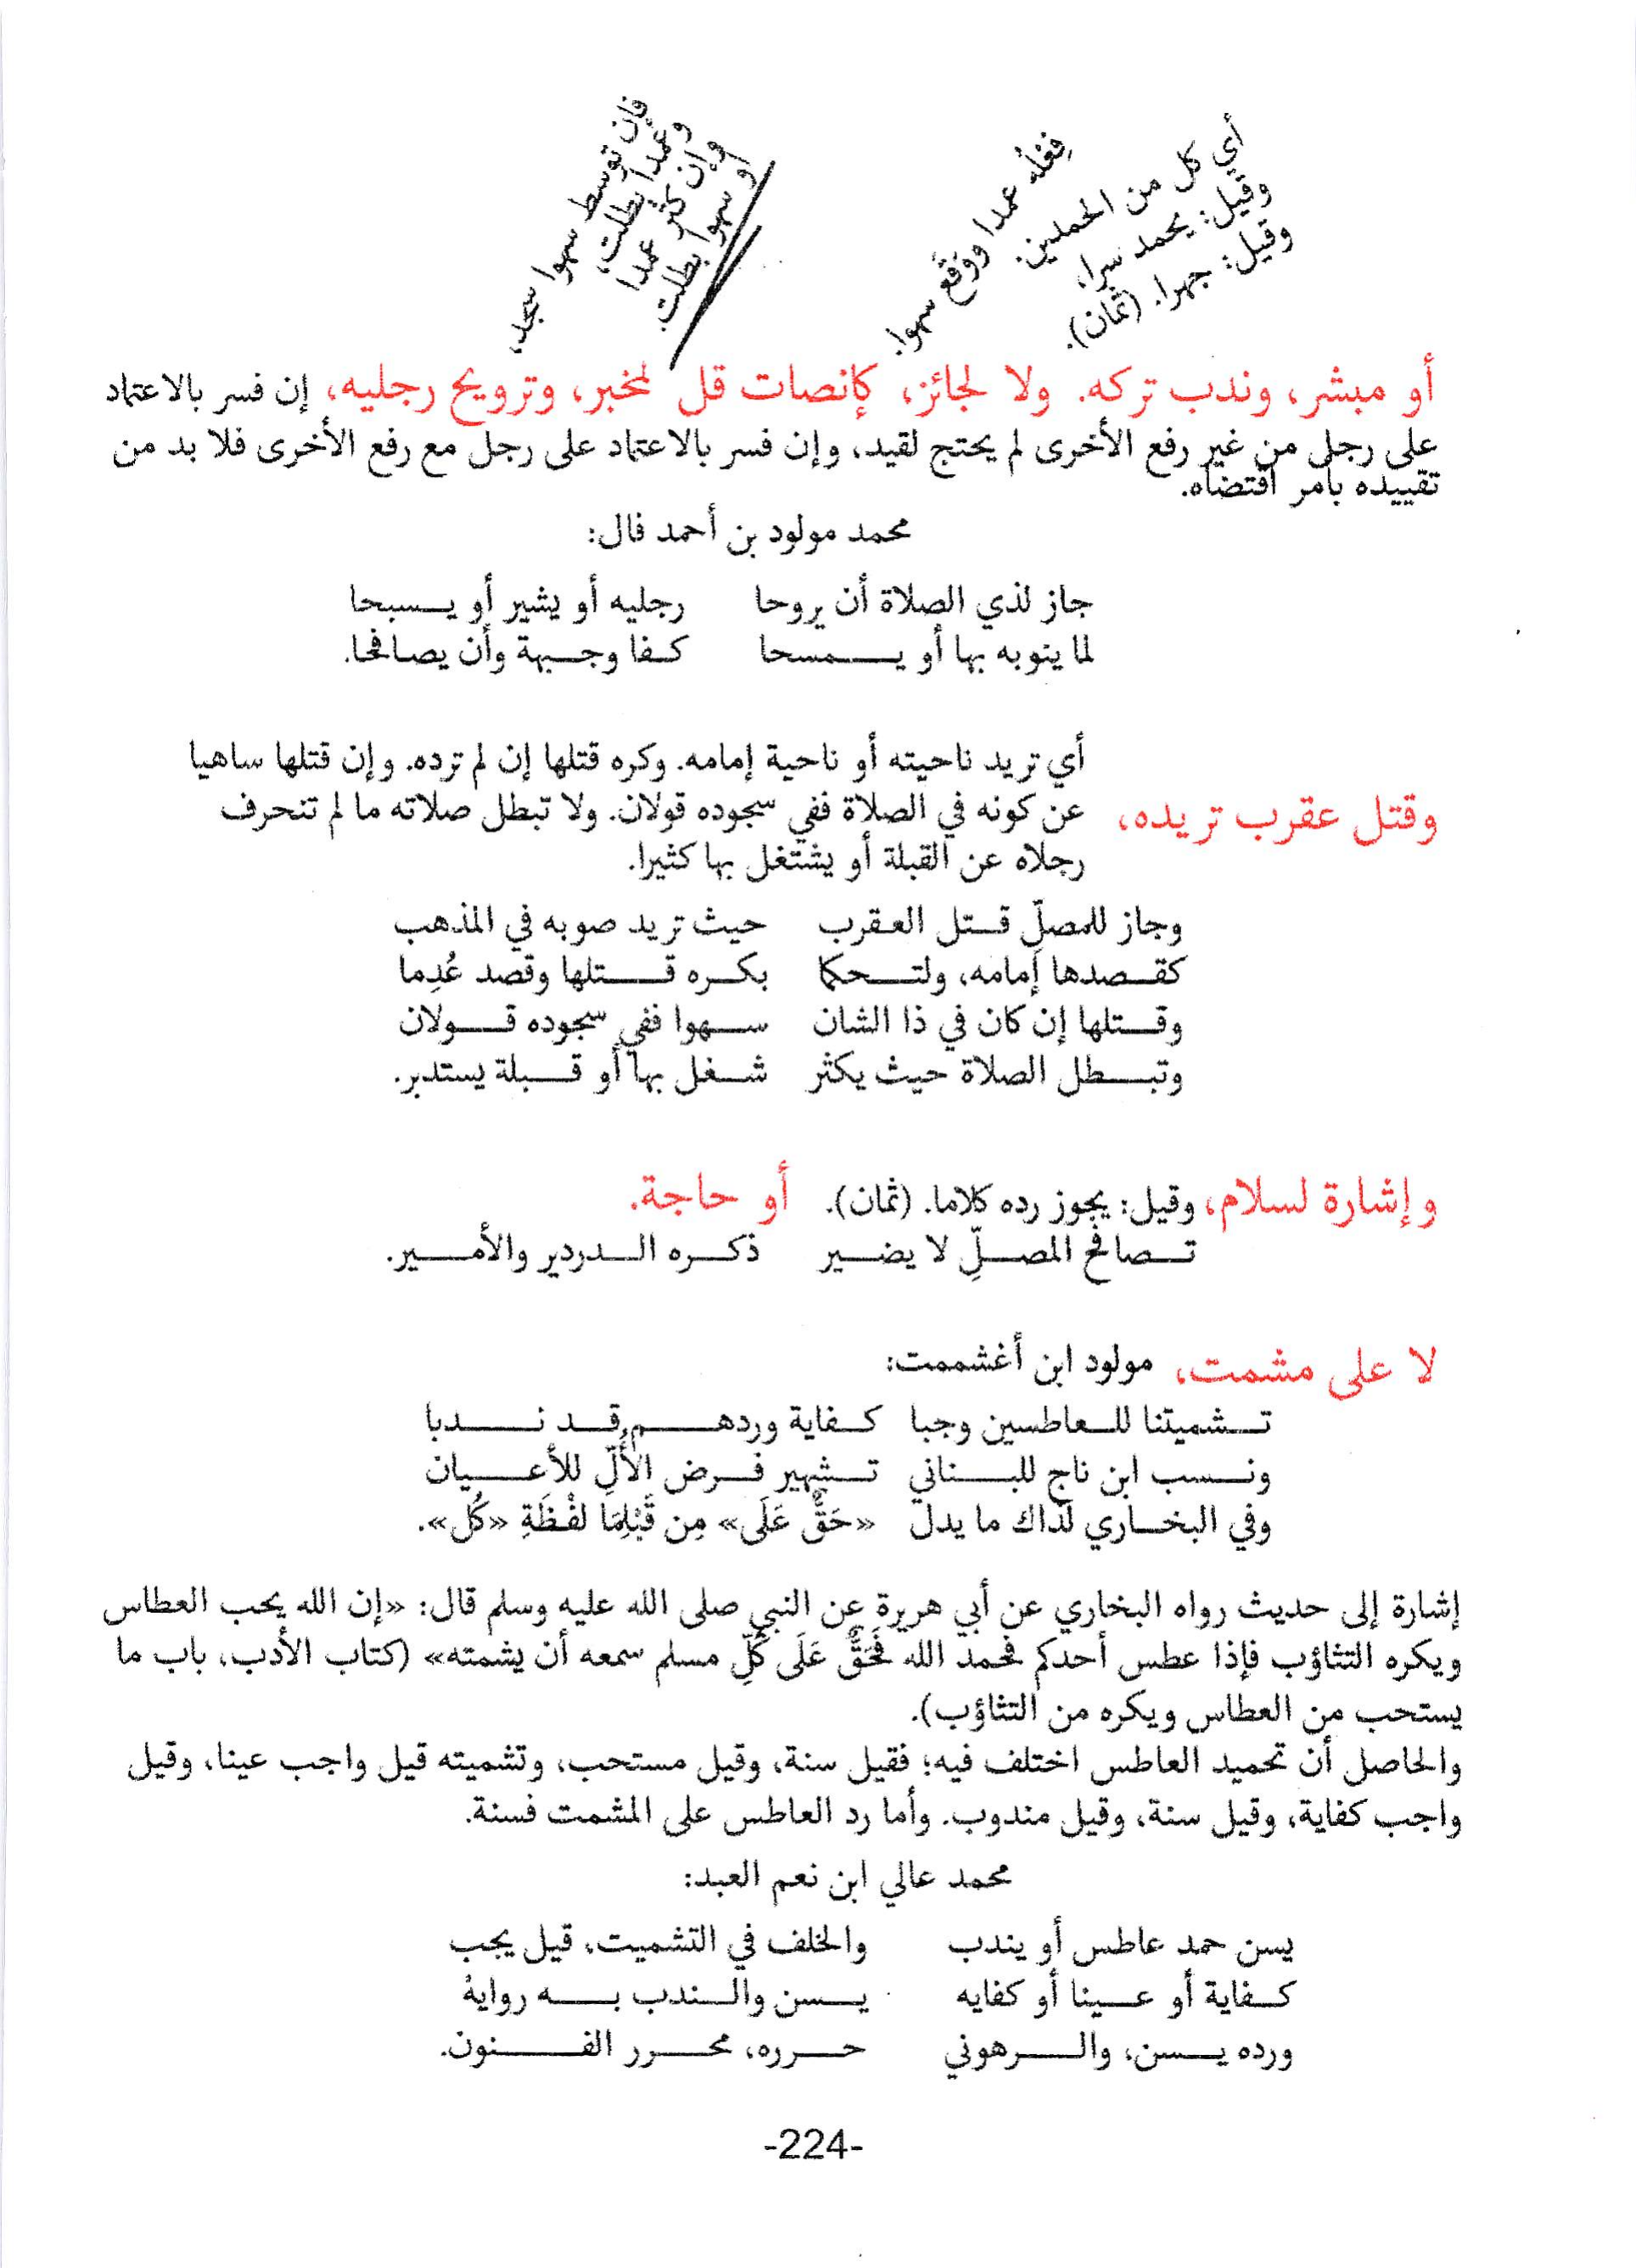 أي كل من الحمدين.
وقيل: يحمد سرا،
وقيل: جهرا. (ثمان).
فِعْلُه عمدا ووَقَع سهوا.
فإن توسط سهوا سجد،
وعمدا بطلت،
وإن كثر عمدا
أو سهوا بطلت.
أو مبشر، وندب تركه. ولا لجائز، كإنصات قل لمخبر، وترويح رجليه، إن فسر بالاعتماد
على رجل من غير رفع الأخرى لم يحتج لقيد، وإن فسر بالاعتماد على رجل مع رفع الأخرى فلا بد من
تقييده بأمر اقتضاه.
محمد مولود بن أحمد فال:
جاز لذي الصلاة أن يروحا رجليه أو يشير أو يسبحا
لما ينوبه بها أو يمسحا كفا وجبهة وأن يصافحا.
أي تريد ناحيته أو ناحية إمامه. وكره قتلها إن لم ترده. وإن قتلها ساهيا
وقتل عقرب تريده، عن كونه في الصلاة ففي سجوده قولان. ولا تبطل صلاته ما لم تنحرف
رجلاه عن القبلة أو يشتغل بها كثيرا.
وجاز للمصلِّ قتل العقرب حيث تريد صوبه في المذهب
كقصدها إمامه، ولتحكما بكره قتلها وقصد عُدِما
وقتلها إن كان في ذا الشان سهوا ففي سجوده قولان
وتبطل الصلاة حيث يكثر شغل بها أو قبلة يستدبر.
وإشارة لسلام، وقيل: يجوز رده كلاما. (ثمان). أو حاجة.
تصافح المصلِّ لا يضير ذكره الدردير والأمير.
لا على مشمت، مولود ابن أغشممت:
تشميتنا للعاطسين وجبا كفاية وردهم قد ندبا
ونسب ابن ناج للبناني تشهير فرض الأُلِّ للأعيان
وفي البخاري لذاك ما يدل «حَقٌّ عَلَى» مِن قَبْلِمَا لفْظَةِ «كُل».
إشارة إلى حديث رواه البخاري عن أبي هريرة عن النبي صلى الله عليه وسلم قال: «إن الله يحب العطاس
ويكره التثاؤب فإذا عطس أحدكم فحمد الله فَحَقٌّ عَلَى كُلِّ مسلم سمعه أن يشمته» (كتاب الأدب، باب ما
يستحب من العطاس ويكره من التثاؤب).
والحاصل أن تحميد العاطس اختلف فيه؛ فقيل سنة، وقيل مستحب، وتشميته قيل واجب عينا، وقيل
واجب كفاية، وقيل سنة، وقيل مندوب. وأما رد العاطس على المشمت فسنة.
محمد عالي ابن نعم العبد:
يسن حمد عاطس أو يندب والخلف في التشميت، قيل يجب
كفاية أو عينا أو كفايه يسن والندب به روايهْ
ورده يسن، والرهوني حرره، محرر الفنون.
-224-